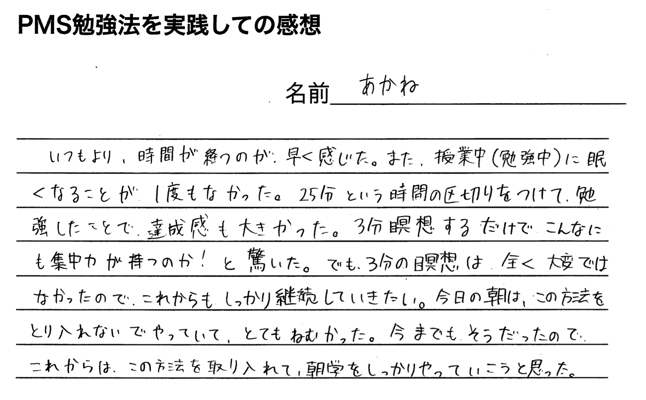 PMS勉強法を実践しての感想
名前 あかね
いつもより、時間が経つのが、早く感じた。また、授業中(勉強中)に眠
くなることが、1度もなかった。25分という時間の区切りをつけて、勉
強したことで、達成感も大きかった。3分瞑想するだけで、こんなに
も集中力が持つのか!と驚いた。でも、3分の瞑想は、全く大変では
なかったので、これからもしっかり継続していきたい。今日の朝は、この方法を
とり入れないでやっていて、とてもねむかった。今までもそうだったので、
これからは、この方法を取り入れて、朝学をしっかりやっていこうと思った。